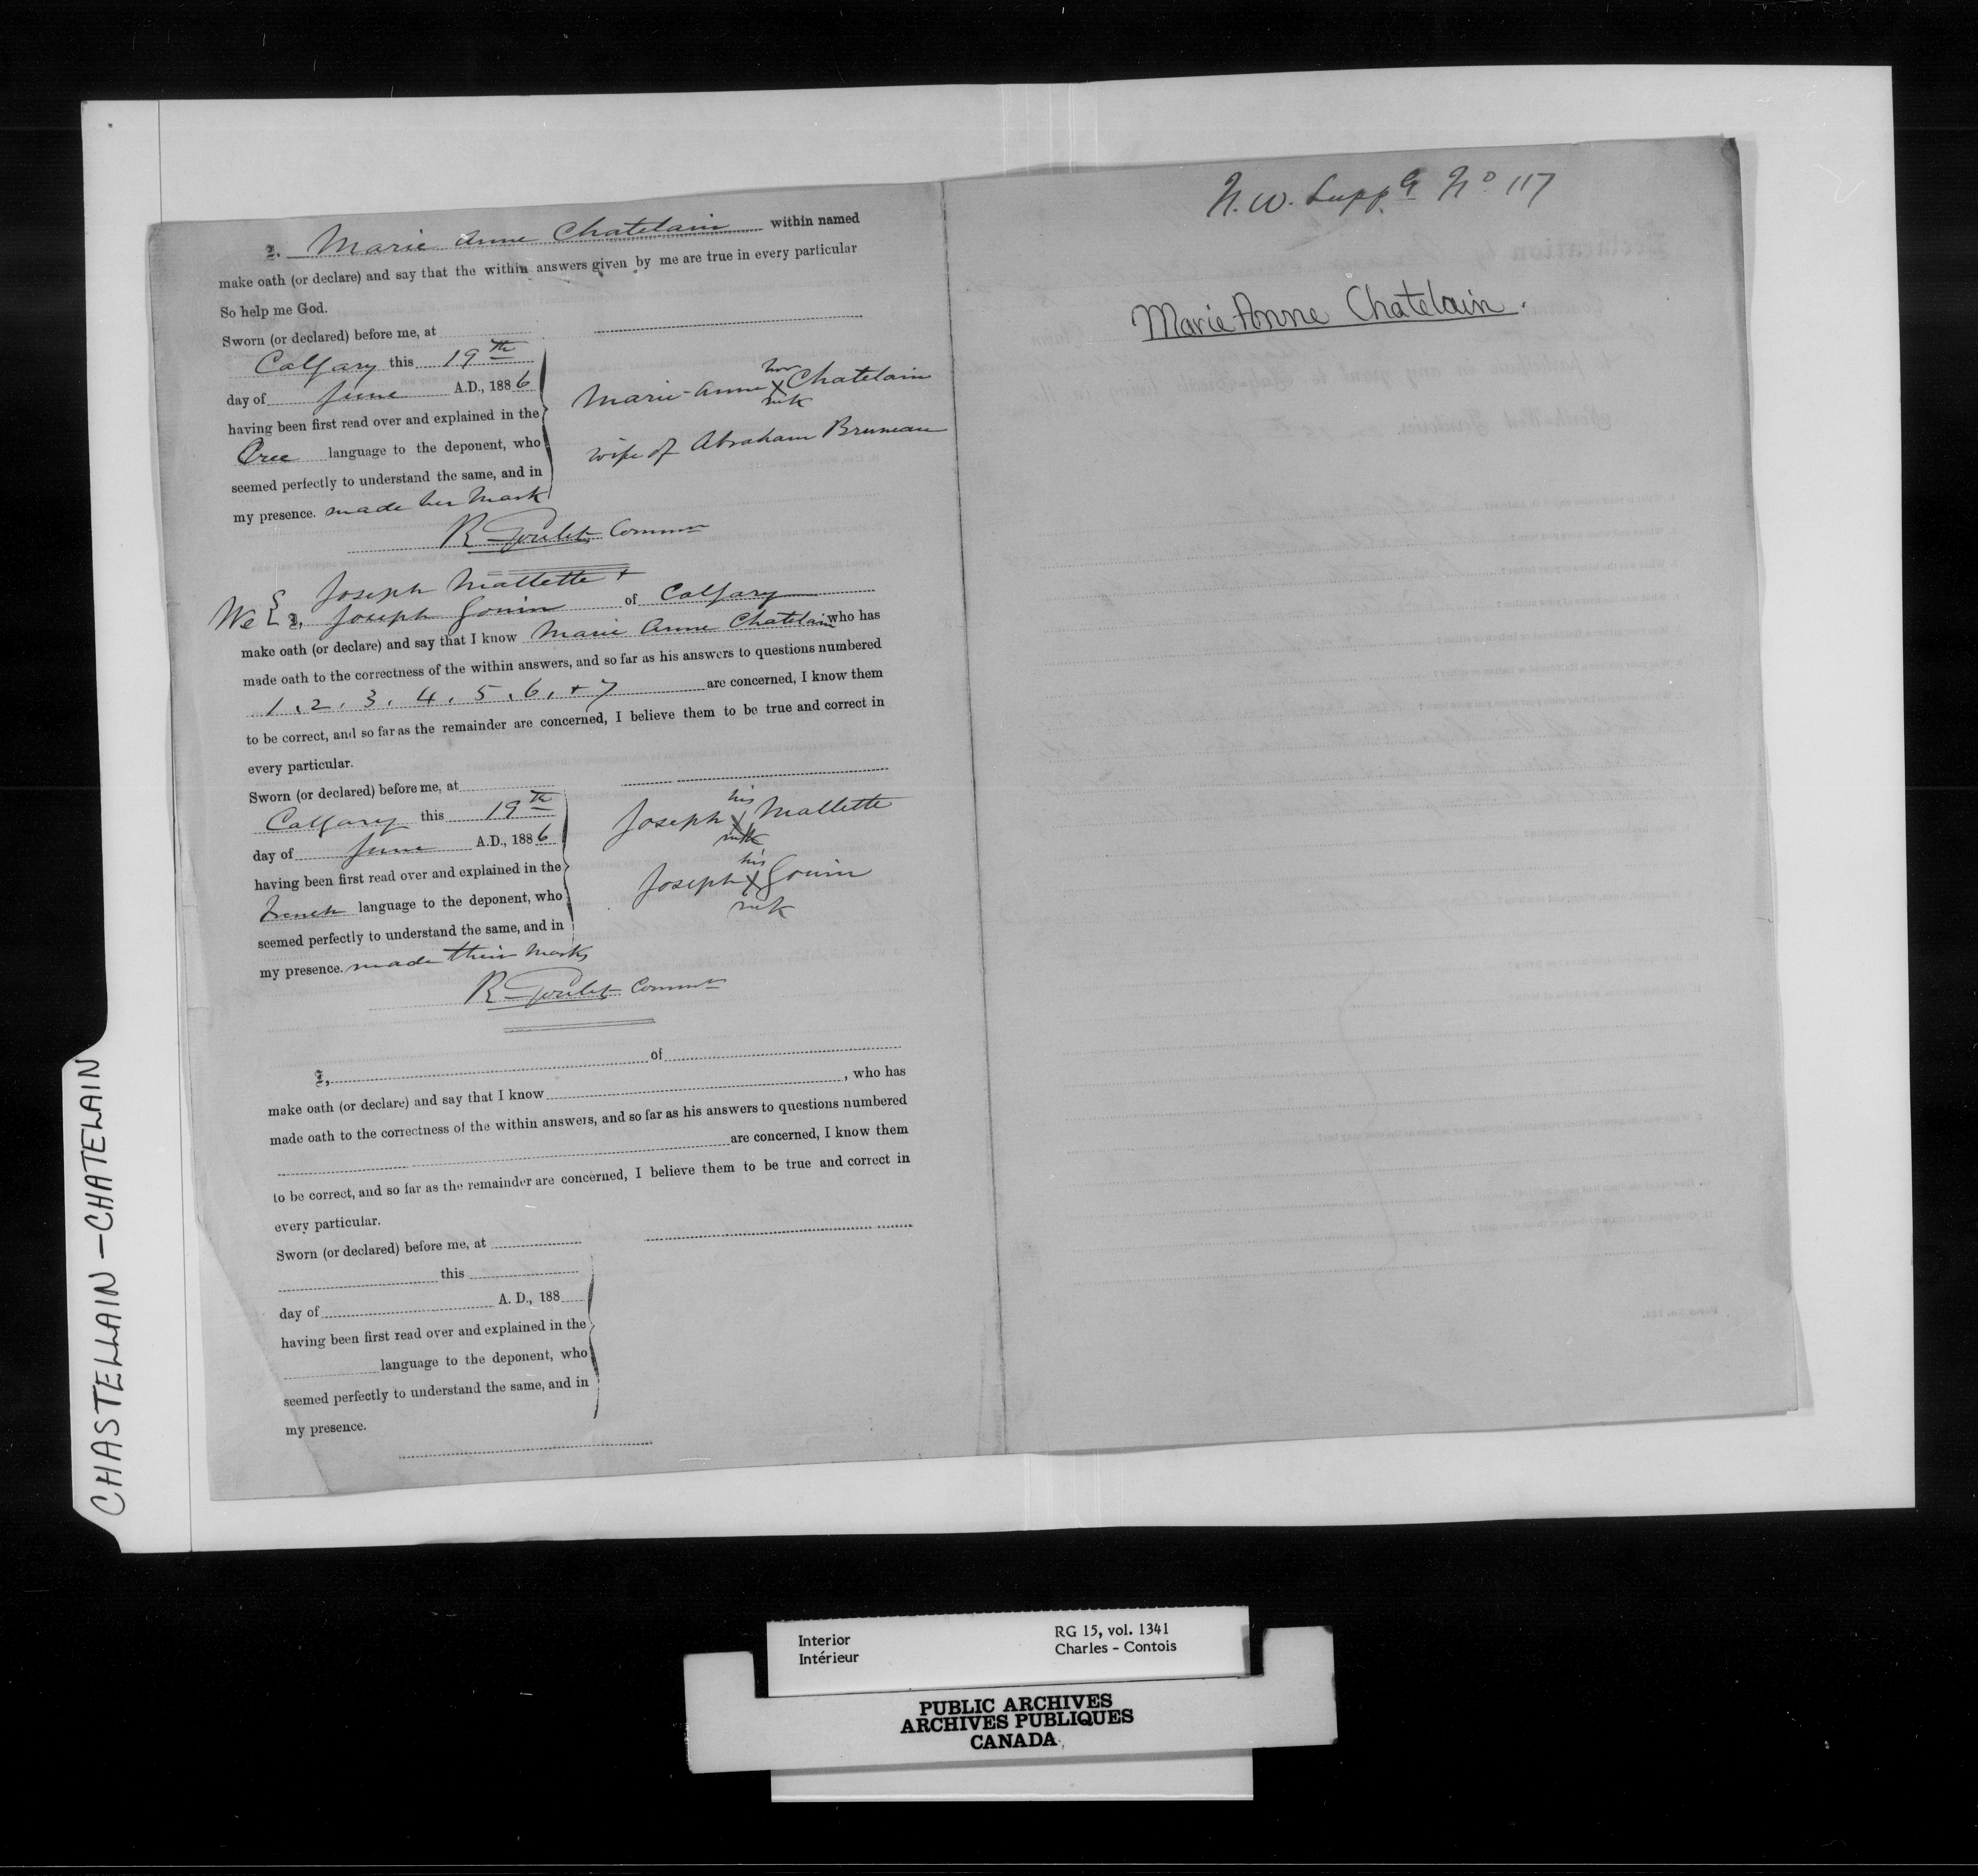 I, Marie Anne Chatelain within named
make oath (or declare) and say that the within answers given by me are true in every particular
So help me God.
Sworn (or declared) before me, at
Calgary this 19th
day of June A.D., 1886
having been first read over and explained in the
Cree language to the deponent, who
seemed perfectly to understand the same, and in
my presence. made her mark
her
Marie-Anne X Chatelain
mk
wife of Abraham Bruneau
R Goulet Commr
We { Joseph Mallette +
I, Joseph Gouin of Calgary
make oath (or declare) and say that I know Marie Anne Chatelain who has
made oath to the correctness of the within answers, and so far as his answers to questions numbered
1, 2, 3, 4, 5, 6, + 7 are concerned, I know them
to be correct, and so far as the remainder are concerned, I believe them to be true and correct in
every particular.
Sworn (or declared) before me, at
Calgary this 19th
day of June A.D., 1886
having been first read over and explained in the
French language to the deponent, who
seemed perfectly to understand the same, and in
my presence. made their marks
his
Joseph X Mallette
mk
his
Joseph X Gouin
mk
R Goulet Commr
I, of
make oath (or declare) and say that I know , who has
made oath to the correctness of the within answers, and so far as his answers to questions numbered
are concerned, I know them
to be correct, and so far as the remainder are concerned, I believe them to be true and correct in
every particular.
Sworn (or declared) before me, at
this
day of A. D., 188
having been first read over and explained in the
language to the deponent, who
seemed perfectly to understand the same, and in
my presence.
N. W. Supp. No 117
Marie-Anne Chatelain.
CHASTELLAIN – CHATELAIN
Interior
Intérieur
RG 15, vol. 1341
Charles - Contois
PUBLIC ARCHIVES
ARCHIVES PUBLIQUES
CANADA